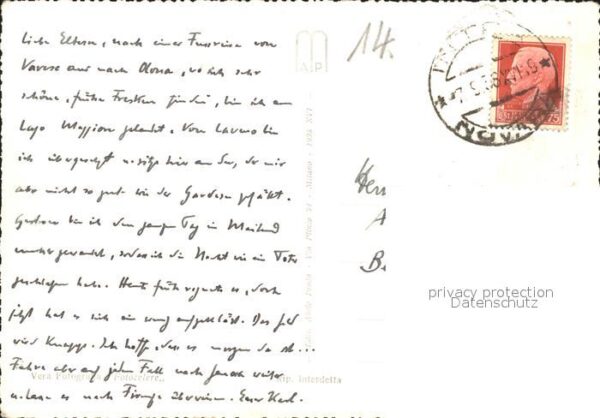 Liebe Eltern, nach einer Fussreise von
Varese aus nach Olona, wo sich sehr
schöne, frühe Fresken finden, bin ich am
Lago Maggiore gelandet. Von Laveno bin
ich übergesetzt u. sitze hier am See, der mir
aber nicht so gut wie der Gardasee gefällt.
Gestern bin ich den ganzen Tag in Mailand
umhergewandert, sodass ich die Nacht wie ein Toter
geschlafen habe. Heute früh regnete es, doch
jetzt hat es sich ein wenig aufgeklärt. Das Geld
wird knapp. Ich hoffe, dass es morgen da ist...
Fahre aber auf jeden Fall nach Genua weiter
u. dann es nach Firenze überweisen. Euer Karl.
Vera Fotografia
Rip. Interdetta
Milano - 1935 XIII
A P
14.
Herr
A
B.
7.9.36
NOVARA
75
privacy protection
Datenschutz